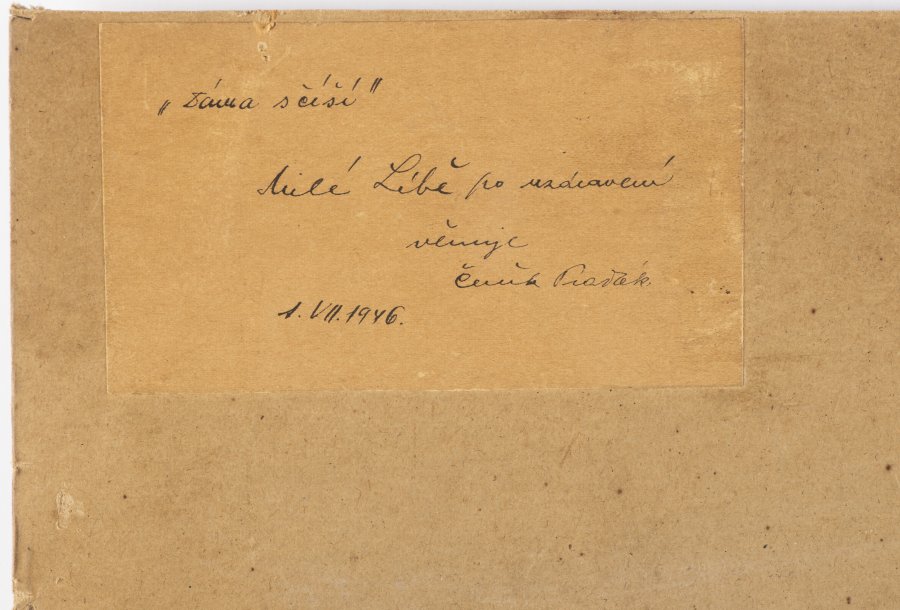 „Dáma s číší"
Milé Líbě po uzdravení
věnuje
Čeněk
1. VII. 1946.